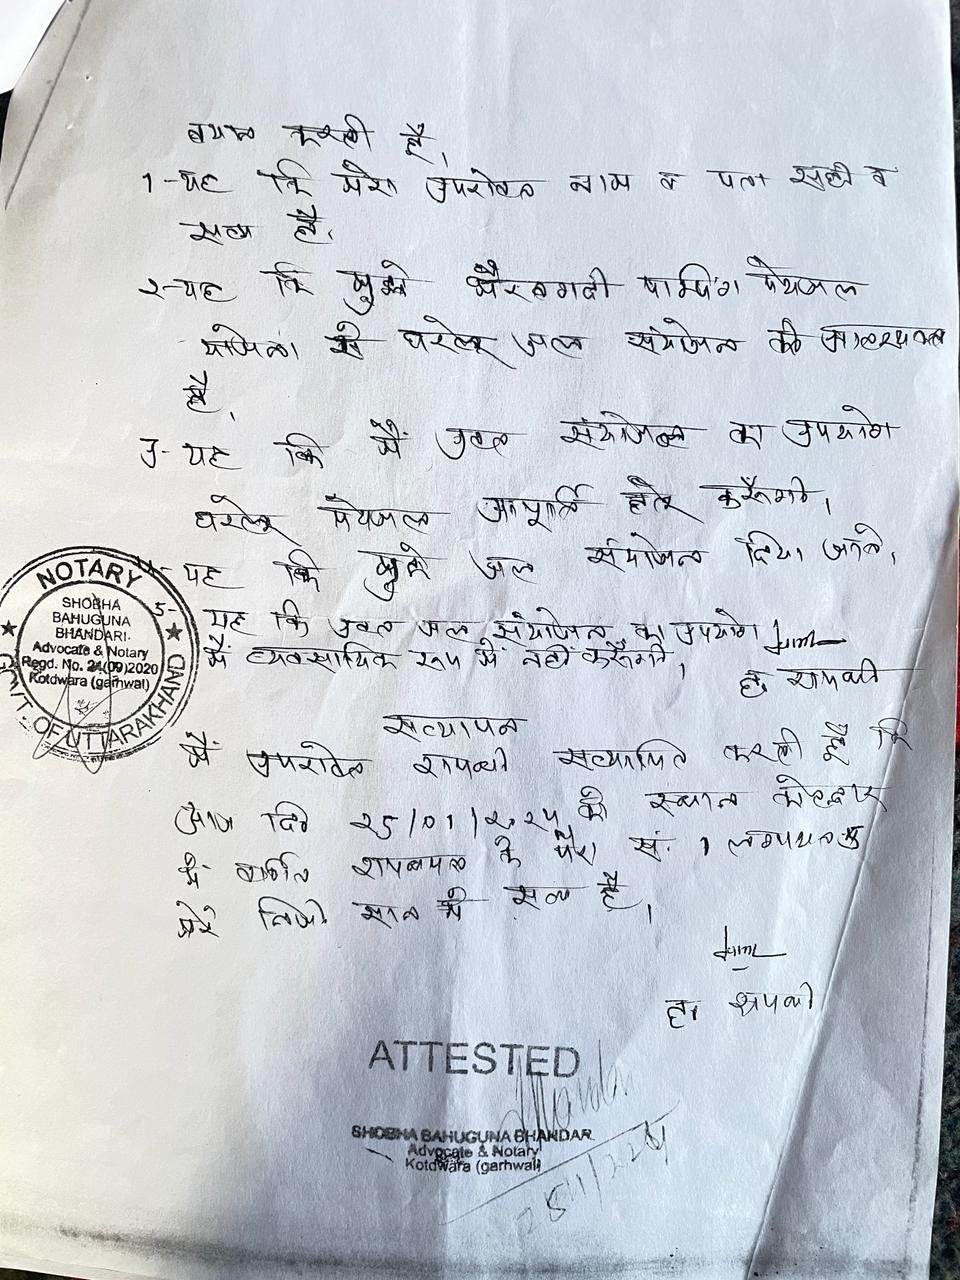 बयान करती हूँ।
1- यह कि मेरा उपरोक्त नाम व पता सही व
सत्य है।
2- यह कि मुझे भैरवगढी पाम्पिंग पेयजल
योजना से घरेलू जल संयोजन की आवश्यकता
है।
3- यह कि मैं उक्त संयोजन का उपयोग
घरेलू पेयजल आपूर्ति हेतु करूँगी।
यह कि मुझे जल संयोजन दिया जावे।
5- यह कि उक्त जल संयोजन का उपयोग
मैं व्यवसायिक रूप में नहीं करूँगी।
ह. शपथी
सत्यापन
मैं उपरोक्त शपथी सत्यापित करती हूँ कि
आज दि० 25/01/2024 को स्थान कोटद्वार
में वर्णित शपथपत्र के पैरा सं. 1 लगायत 5
मेरे निजी ज्ञान में सत्य है।
ह. शपथी
NOTARY
SHOBHA
BAHUGUNA
BHANDARI
Advocate & Notary
Regd. No. 21(09)2020
Kotdwara (garhwal)
GOVT. OF UTTARAKHAND
ATTESTED
SHOBHA BAHUGUNA BHANDAR
Advocate & Notary
Kotdwara (garhwal)